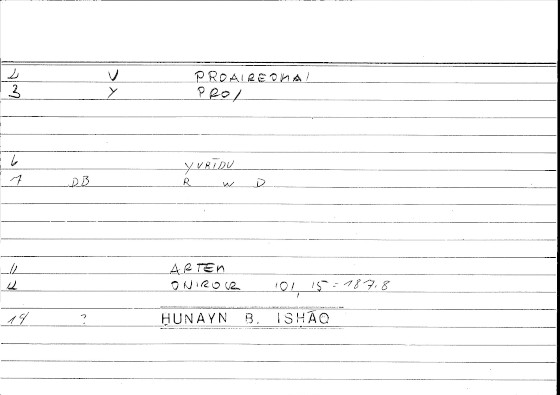 2 V PROAIREOMAI
3 Y PRO/
6 YURĪDU
7 DB R W D
11 ARTEM
12 ONIROCR 101, 15 = 187.8
14 ? HUNAYN B. ISHĀQ